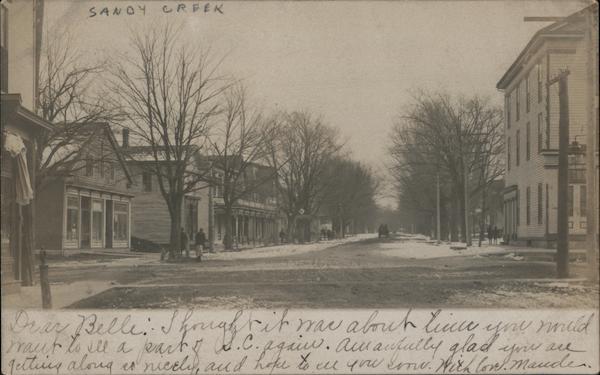 SANDY CREEK
Dear Belle: Thought it was about time you would
want to see a part of S.C. again. Am awfully glad you are
getting along so nicely, and hope to see you soon. With love. Maude.